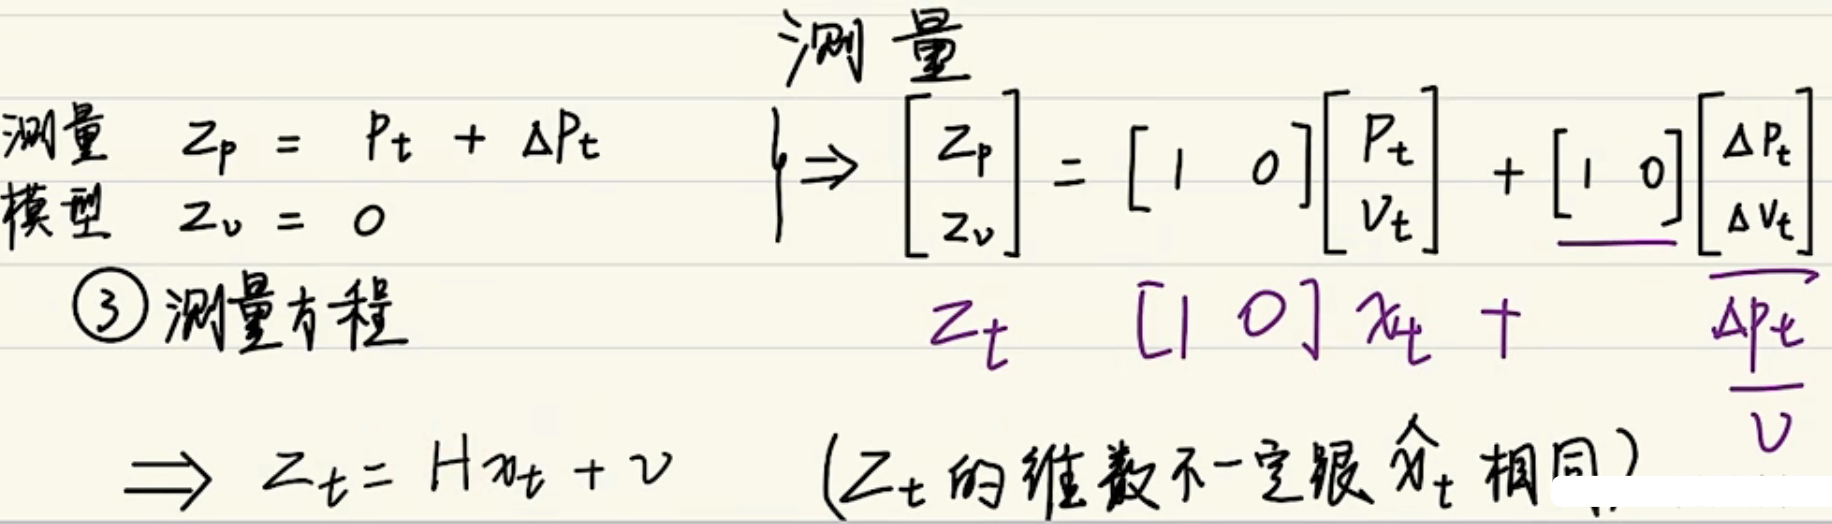 测量
测量 Zp = Pt + ΔPt
模型 Zv = 0
} ⇒ [Zp Zv] = [1 0] [Pt Vt] + [1 0] [ΔPt ΔVt]
③ 测量方程
Zt [1 0] xt + ΔPt
v
⇒ Zt = Hxt + v (Zt 的维数不一定跟 x̂t 相同)